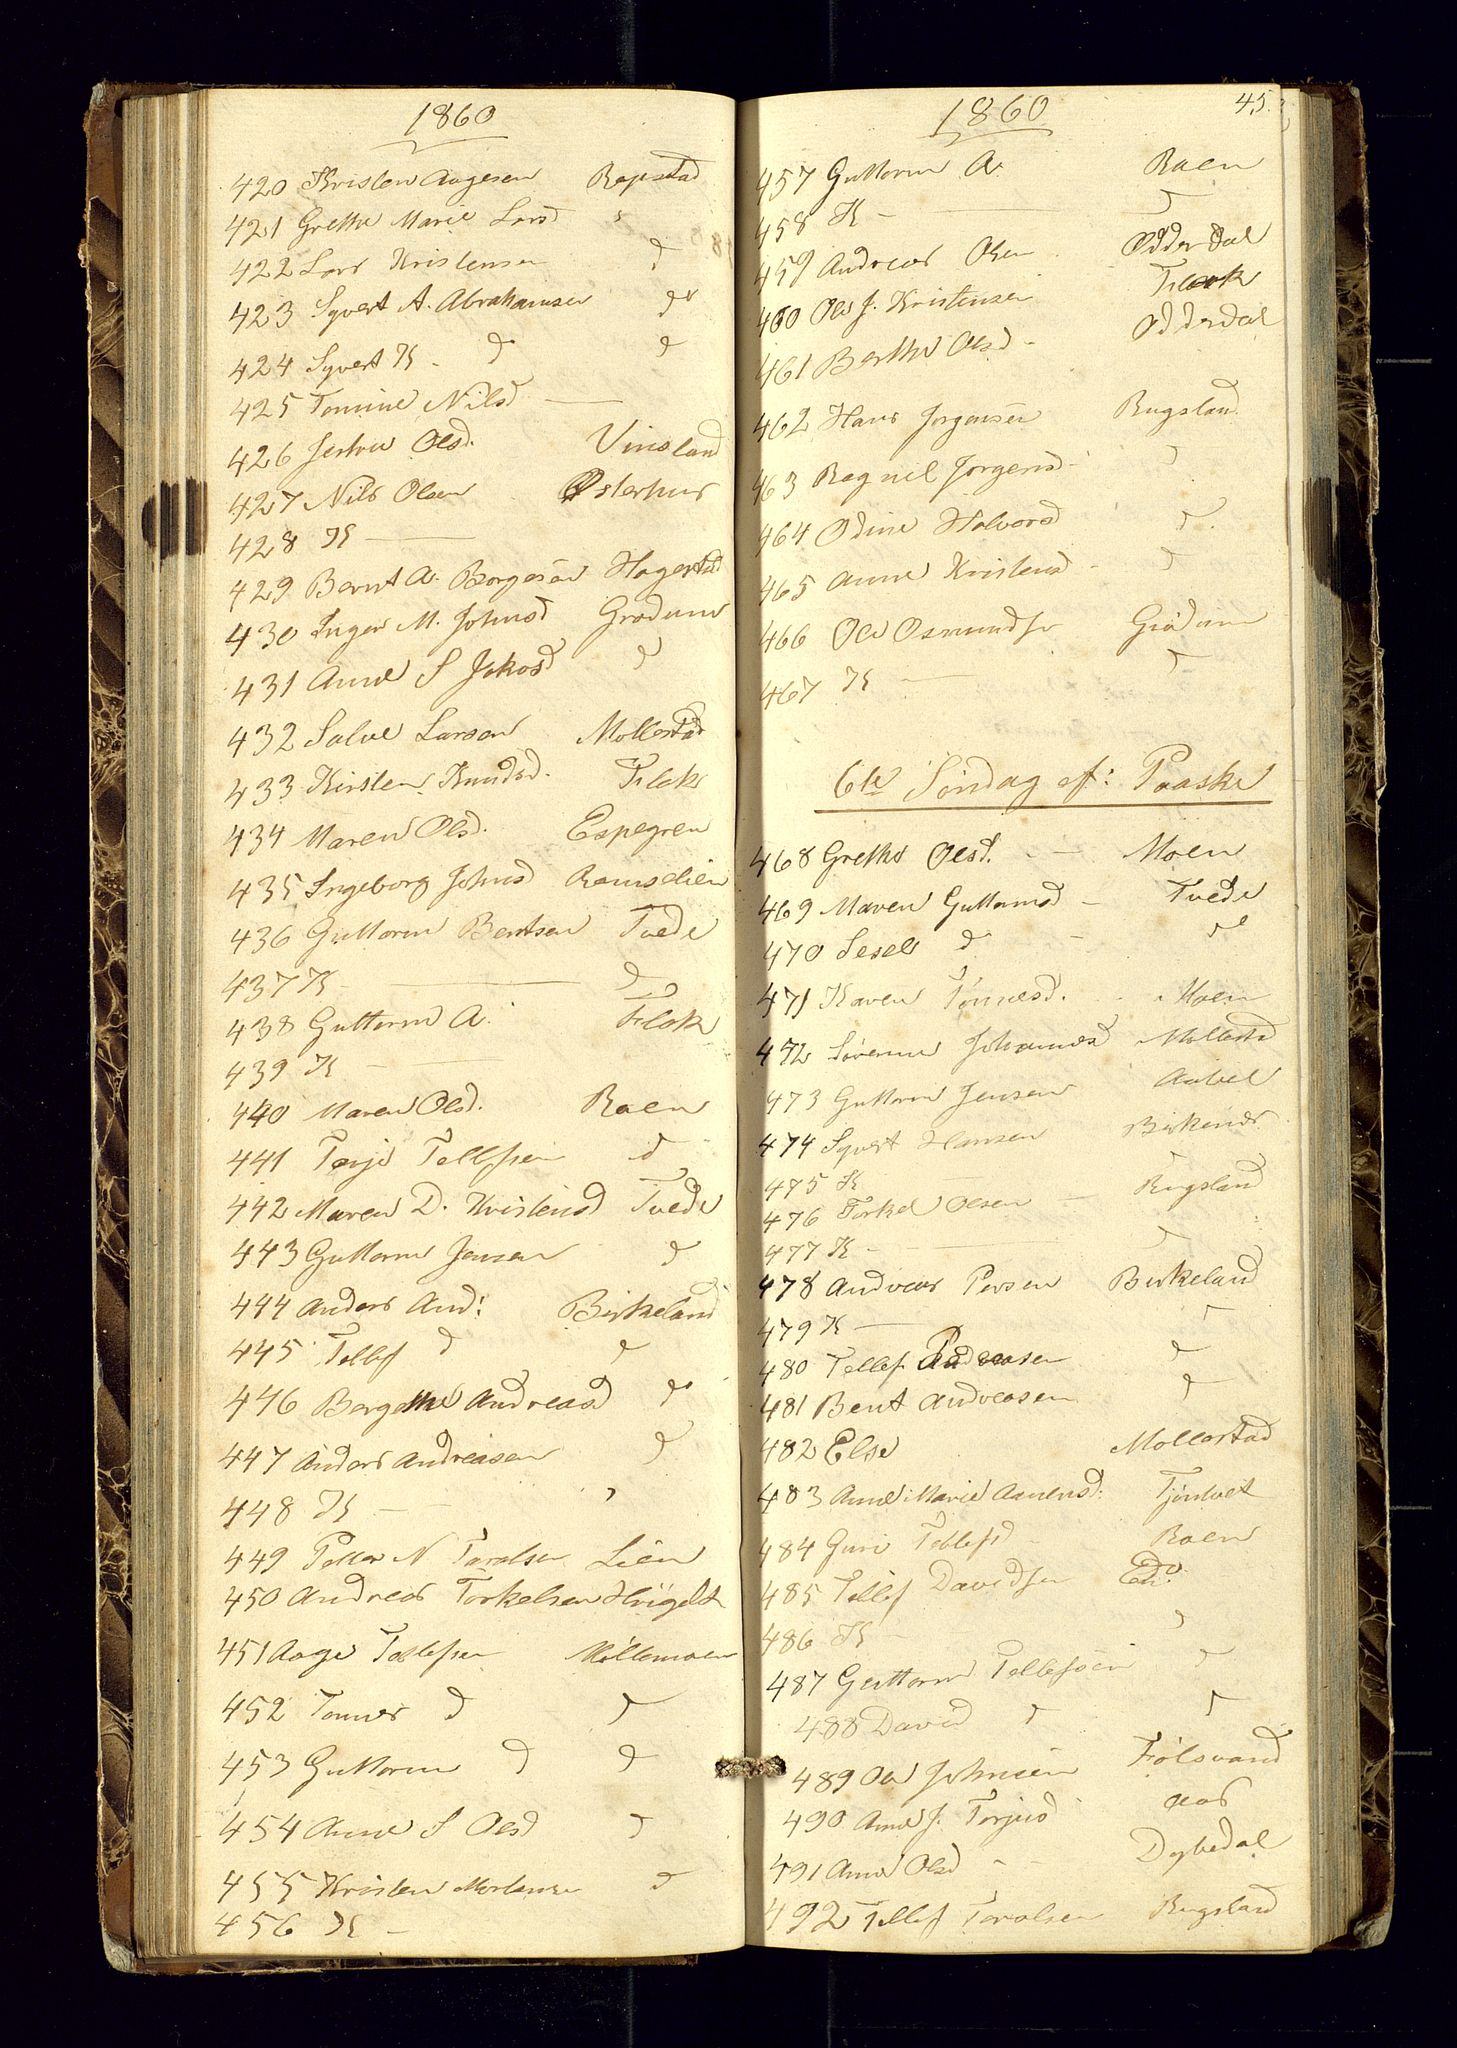 1860
420 Kristen Aagesen Repstad
421 Grethe Marie Larsd "
422 Lars Kristensen d
423 Syvert A. Abrahamsen do
424 Syvert K - d d
425 Tomine Nilsd —
426 Olsd. Vinsland
427 Nils Olsen Østerhus
428 K —
429 Bernt A. Borgesen Hagestad
430 Inger M. Johnsd Grødum
431 Anne S Jakosd d
432 Salve Larsen Mollestad
433 Kirsten Knudsd. Flak
434 Maren Olsd. Espegren
435 Ingeborg Johnsd Ramselien
436 Guttorm Bentsen Tvede
437 K — d
438 Guttorm A. Flak
439 K —
440 Maren Olsd. Raen
441 Terje Tellefsen d
442 Maren D. Kristensd Tvede
443 Guttorm Jensen d
444 Anders And: Birkeland
445 Tellef d d
446 Bergethe Andreasd do
447 Anders Andreasen d
448 K — "
449 Petter N Taralsen Lien
450 Andreas Torkelsen
451 Aage Tellefsen Möllemoen
452 Tonnes d d
453 Guttorm d d
454 Anne S Olsd d
455 Kristen Mortensen d
456 K -
1860 45.
457 Guttorm A. Raen
458 K — d
459 Andreas Olsen Odderdal
460 Ole J. Kristensen Flak
461 Berthe Olsd - Odderdal
462 Hans Jorgensen Rugsland
463 Ragnil Jorgensd - d
464 Odine Halvorsd d
465 Anne Kristensd - d
466 Ole Osmundsen Grødum
467 K — d
6te Søndag ef: Paaske
468 Grethe Olsd. - Moen
469 Maren Guttormsd - Tvede
470 Sesel d - d
471 Karen Tønnesd. - Moen
472 Sørenne Johannesd Mollestad
473 Guttorm Jensen Aabel
474 Syvert Hansen Birkenes
475 K — d
476 Torkel Olsen - Rugsland
477 K — d
478 Andreas Persen Birkeland
479 K — d
480 Tellef Andreasen d
481 Bent Andreasen d
482 Else Mollestad
483 Anne Marie Aanensd: Tjøntvet
484 Guri Tellefsd - Raen
485 Tellef Davidsen
486 K — d
487 Guttorm Tellefsen d
488 David d d
489 Ole Johnsen Følsvand
490 Anne J. Terjesd
491 Anne Olsd - Dybedal
492 Tellef Taralsen Rugsland